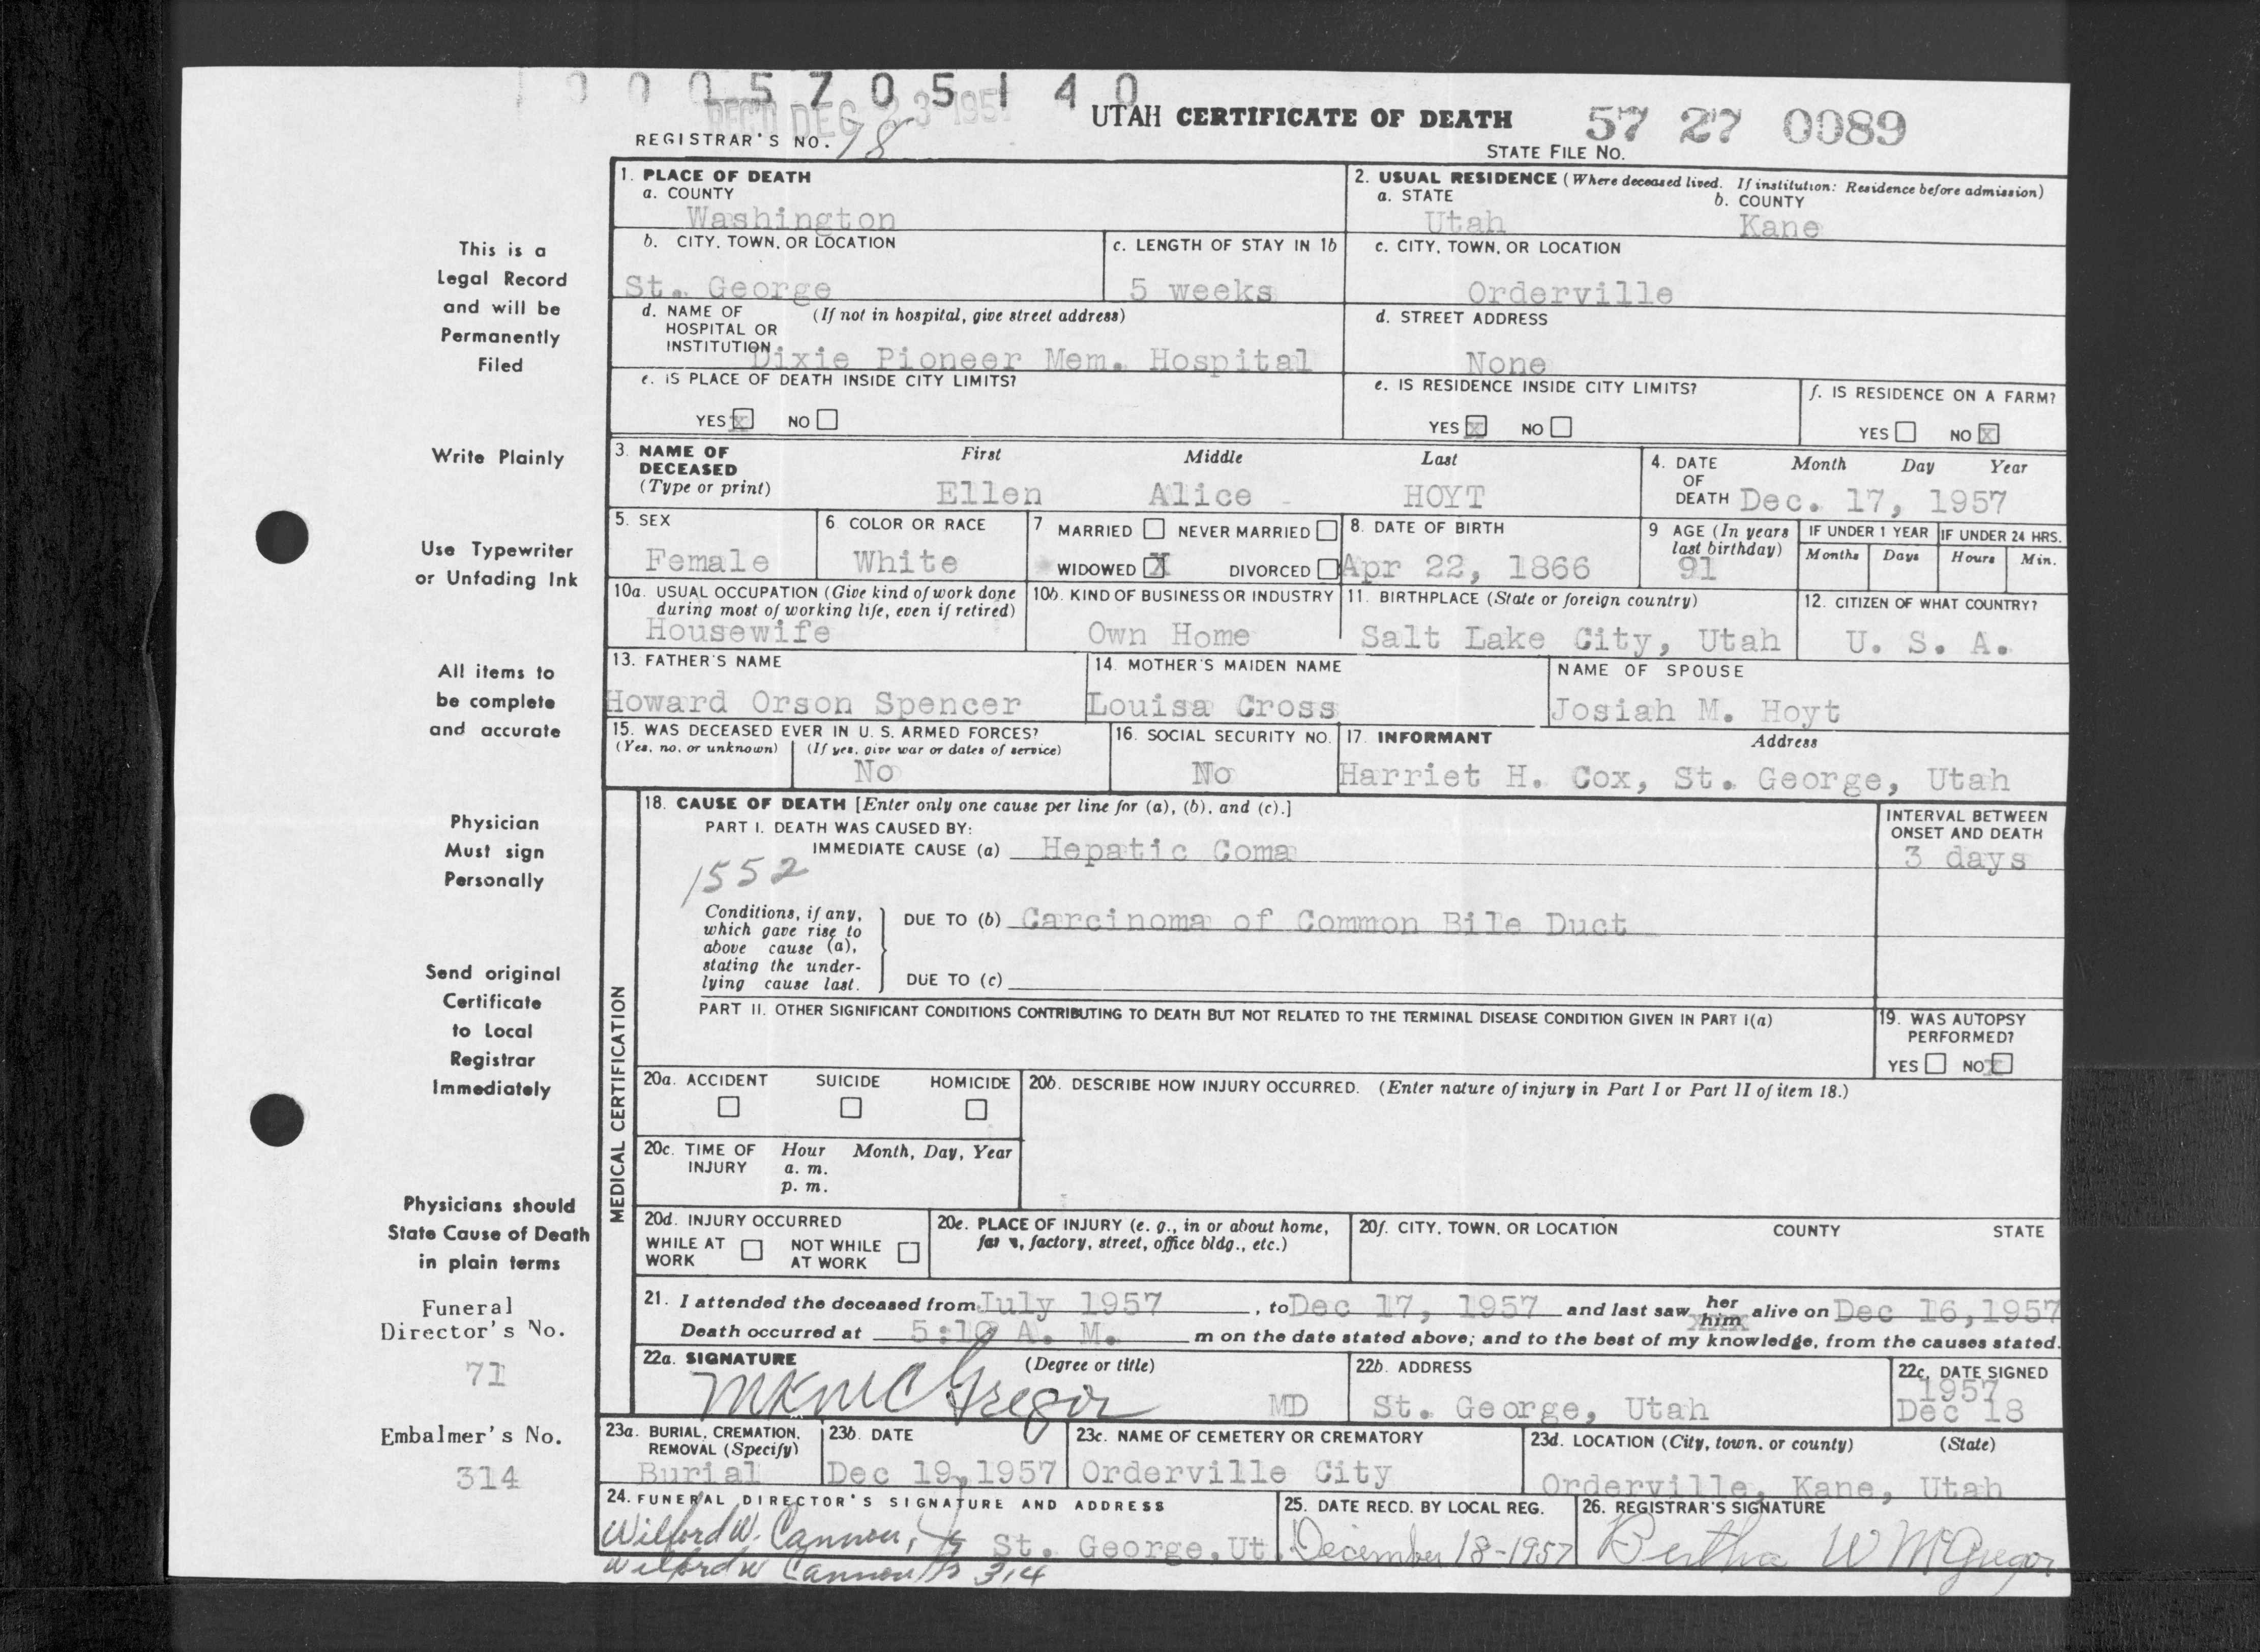 1 0 0 0 5 7 0 5 1 4 0
REC'D DEC 23 1957
UTAH CERTIFICATE OF DEATH
57 27 0089
REGISTRAR'S NO. 78
STATE FILE NO.
This is a
Legal Record
and will be
Permanently
Filed
Write Plainly
Use Typewriter
or Unfading Ink
All items to
be complete
and accurate
Physician
Must sign
Personally
Send original
Certificate
to Local
Registrar
Immediately
Physicians should
State Cause of Death
in plain terms
Funeral
Director's No.
71
Embalmer's No.
314
1. PLACE OF DEATH
a. COUNTY
Washington
2. USUAL RESIDENCE (Where deceased lived. If institution: Residence before admission)
a. STATE b. COUNTY
Utah Kane
b. CITY, TOWN, OR LOCATION
St. George
c. LENGTH OF STAY IN 1b
5 weeks
c. CITY, TOWN, OR LOCATION
Orderville
d. NAME OF (If not in hospital, give street address)
HOSPITAL OR
INSTITUTION Dixie Pioneer Mem. Hospital
d. STREET ADDRESS
None
e. IS PLACE OF DEATH INSIDE CITY LIMITS?
YES X NO
e. IS RESIDENCE INSIDE CITY LIMITS?
YES X NO
f. IS RESIDENCE ON A FARM?
YES NO X
3. NAME OF DECEASED (Type or print)
First Middle Last
Ellen Alice HOYT
4. DATE OF DEATH
Month Day Year
Dec. 17, 1957
5. SEX
Female
6. COLOR OR RACE
White
7 MARRIED NEVER MARRIED
WIDOWED X DIVORCED
8. DATE OF BIRTH
Apr 22, 1866
9 AGE (In years
last birthday)
91
IF UNDER 1 YEAR IF UNDER 24 HRS.
Months Days Hours Min.
10a. USUAL OCCUPATION (Give kind of work done
during most of working life, even if retired)
Housewife
10b. KIND OF BUSINESS OR INDUSTRY
Own Home
11. BIRTHPLACE (State or foreign country)
Salt Lake City, Utah
12. CITIZEN OF WHAT COUNTRY?
U. S. A.
13. FATHER'S NAME
Howard Orson Spencer
14. MOTHER'S MAIDEN NAME
Louisa Cross
NAME OF SPOUSE
Josiah M. Hoyt
15. WAS DECEASED EVER IN U. S. ARMED FORCES?
(Yes, no, or unknown) (If yes, give war or dates of service)
No
16. SOCIAL SECURITY NO.
No
17. INFORMANT Address
Harriet H. Cox, St. George, Utah
MEDICAL CERTIFICATION
18. CAUSE OF DEATH [Enter only one cause per line for (a), (b), and (c).]
PART I. DEATH WAS CAUSED BY:
IMMEDIATE CAUSE (a) Hepatic Coma
INTERVAL BETWEEN
ONSET AND DEATH
3 days
1552
Conditions, if any,
which gave rise to
above cause (a),
stating the under-
lying cause last.
DUE TO (b) Carcinoma of Common Bile Duct
DUE TO (c)
PART II. OTHER SIGNIFICANT CONDITIONS CONTRIBUTING TO DEATH BUT NOT RELATED TO THE TERMINAL DISEASE CONDITION GIVEN IN PART I(a)
19. WAS AUTOPSY
PERFORMED?
YES NO X
20a. ACCIDENT SUICIDE HOMICIDE
20b. DESCRIBE HOW INJURY OCCURRED. (Enter nature of injury in Part I or Part II of item 18.)
20c. TIME OF Hour Month, Day, Year
INJURY a. m.
p. m.
20d. INJURY OCCURRED
WHILE AT NOT WHILE
WORK AT WORK
20e. PLACE OF INJURY (e. g., in or about home,
farm, factory, street, office bldg., etc.)
20f. CITY, TOWN, OR LOCATION COUNTY STATE
21. I attended the deceased from July 1957, to Dec 17, 1957 and last saw her him alive on Dec 16, 1957
Death occurred at 5:10 A. M. m on the date stated above; and to the best of my knowledge, from the causes stated.
22a. SIGNATURE (Degree or title)
MKMcGregor MD
22b. ADDRESS
St. George, Utah
22c. DATE SIGNED
1957
Dec 18
23a. BURIAL, CREMATION,
REMOVAL (Specify)
Burial
23b. DATE
Dec 19, 1957
23c. NAME OF CEMETERY OR CREMATORY
Orderville City
23d. LOCATION (City, town, or county) (State)
Orderville, Kane, Utah
24. FUNERAL DIRECTOR'S SIGNATURE AND ADDRESS
Wilford W. Cannon, Jr St. George, Ut.
25. DATE RECD. BY LOCAL REG.
December 18-1957
26. REGISTRAR'S SIGNATURE
Bertha W McGregor
Wilford W Cannon Jr 314